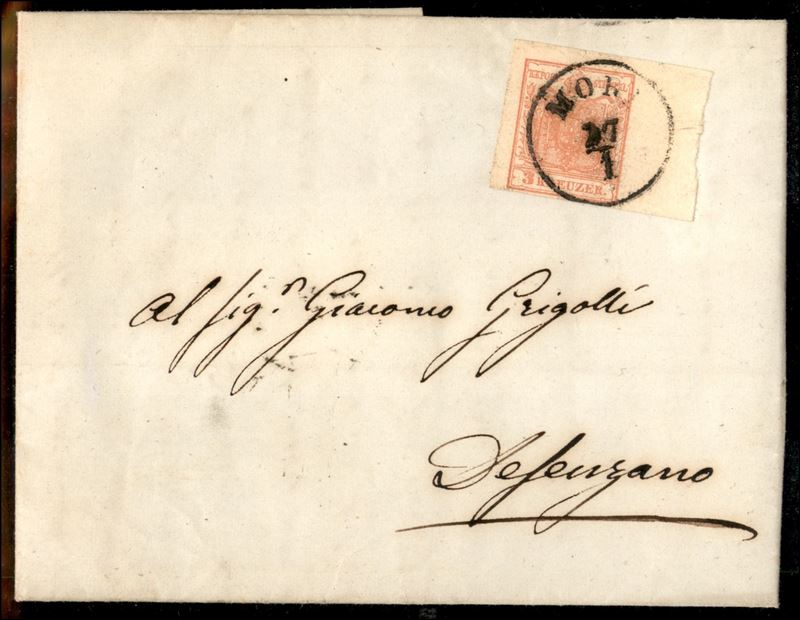 MORI
27
1
3 KREUZER.
Al Sig.ʳ Giacomo Grigolli
Desenzano